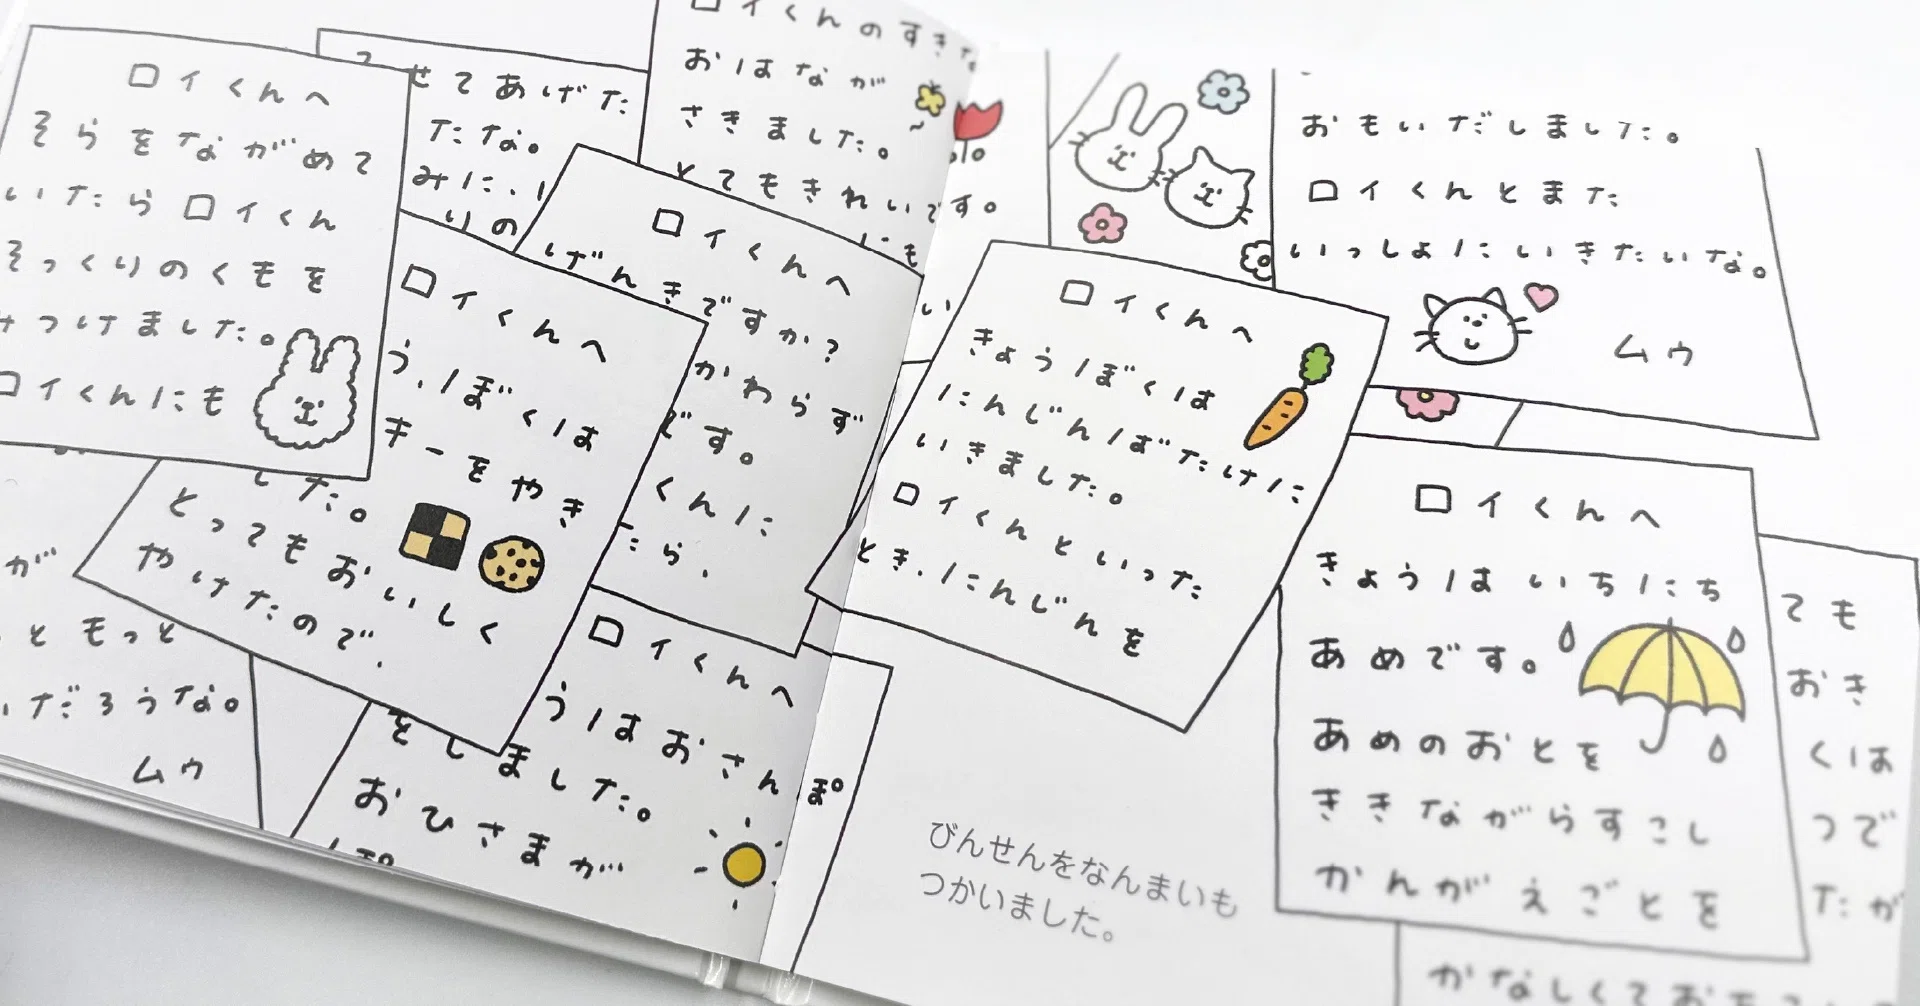 ロイくんへ
そらをながめて
いたらロイくん
そっくりのくもを
みつけました。
ロイくんにも
せてあげた
たな。
みに、
りの
ロイくんのすきな
おはなが
さきました。
とてもきれいです。
にも
ロイくんへ
げんきですか?
かわらず
です。
くんに
たら、
ロイくんへ
う、ぼくは
キーをやき
した。
とってもおいしく
やけたので、
が
ともっと
いだろうな。
ムウ
ロイくんへ
うはおさんぽ
をしました。
おひさまが
ぽ
ロイくんへ
きょうぼくは
にんじんばたけに
いきました。
ロイくんといった
とき、にんじんを
おもいだしました。
ロイくんとまた
いっしょにいきたいな。
ムウ
ロイくんへ
きょうはいちにち
あめです。
あめのおとを
ききながらすこし
かんがえごとを
ても
おき
くは
つで
たが
かなしくてお
びんせんをなんまいも
つかいました。